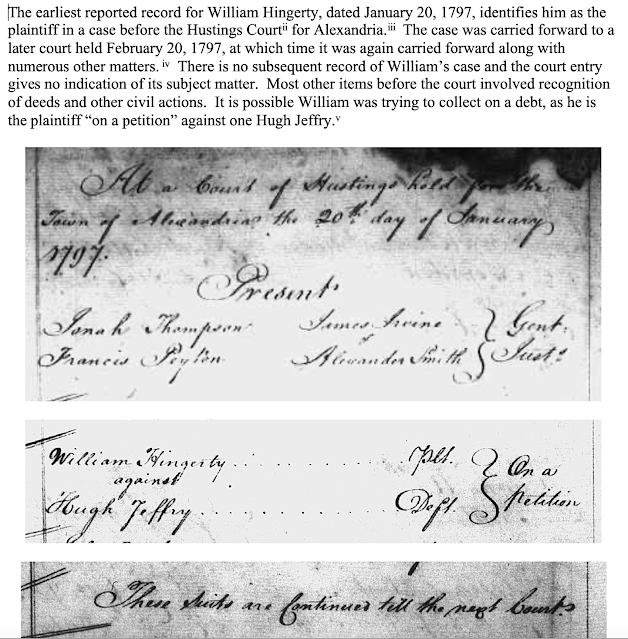 The earliest reported record for William Hingerty, dated January 20, 1797, identifies him as the
plaintiff in a case before the Hustings Courtⁱⁱ for Alexandria.ⁱⁱⁱ The case was carried forward to a
later court held February 20, 1797, at which time it was again carried forward along with
numerous other matters. ⁱᵛ There is no subsequent record of William’s case and the court entry
gives no indication of its subject matter. Most other items before the court involved recognition
of deeds and other civil actions. It is possible William was trying to collect on a debt, as he is
the plaintiff “on a petition” against one Hugh Jeffry.ᵛ
At a Court of Hustings held for the
Town of Alexandria the 20th day of January
1797.
Present
Jonah Thompson James Irvine } Gent.
Francis Peyton Alexander Smith } Just.s
William Hingerty . . . . . . . . . . . Plt. } On a
against
Hugh Jeffry . . . . . . . . . . . Deft. } Petition
These suits are Continued till the next Court